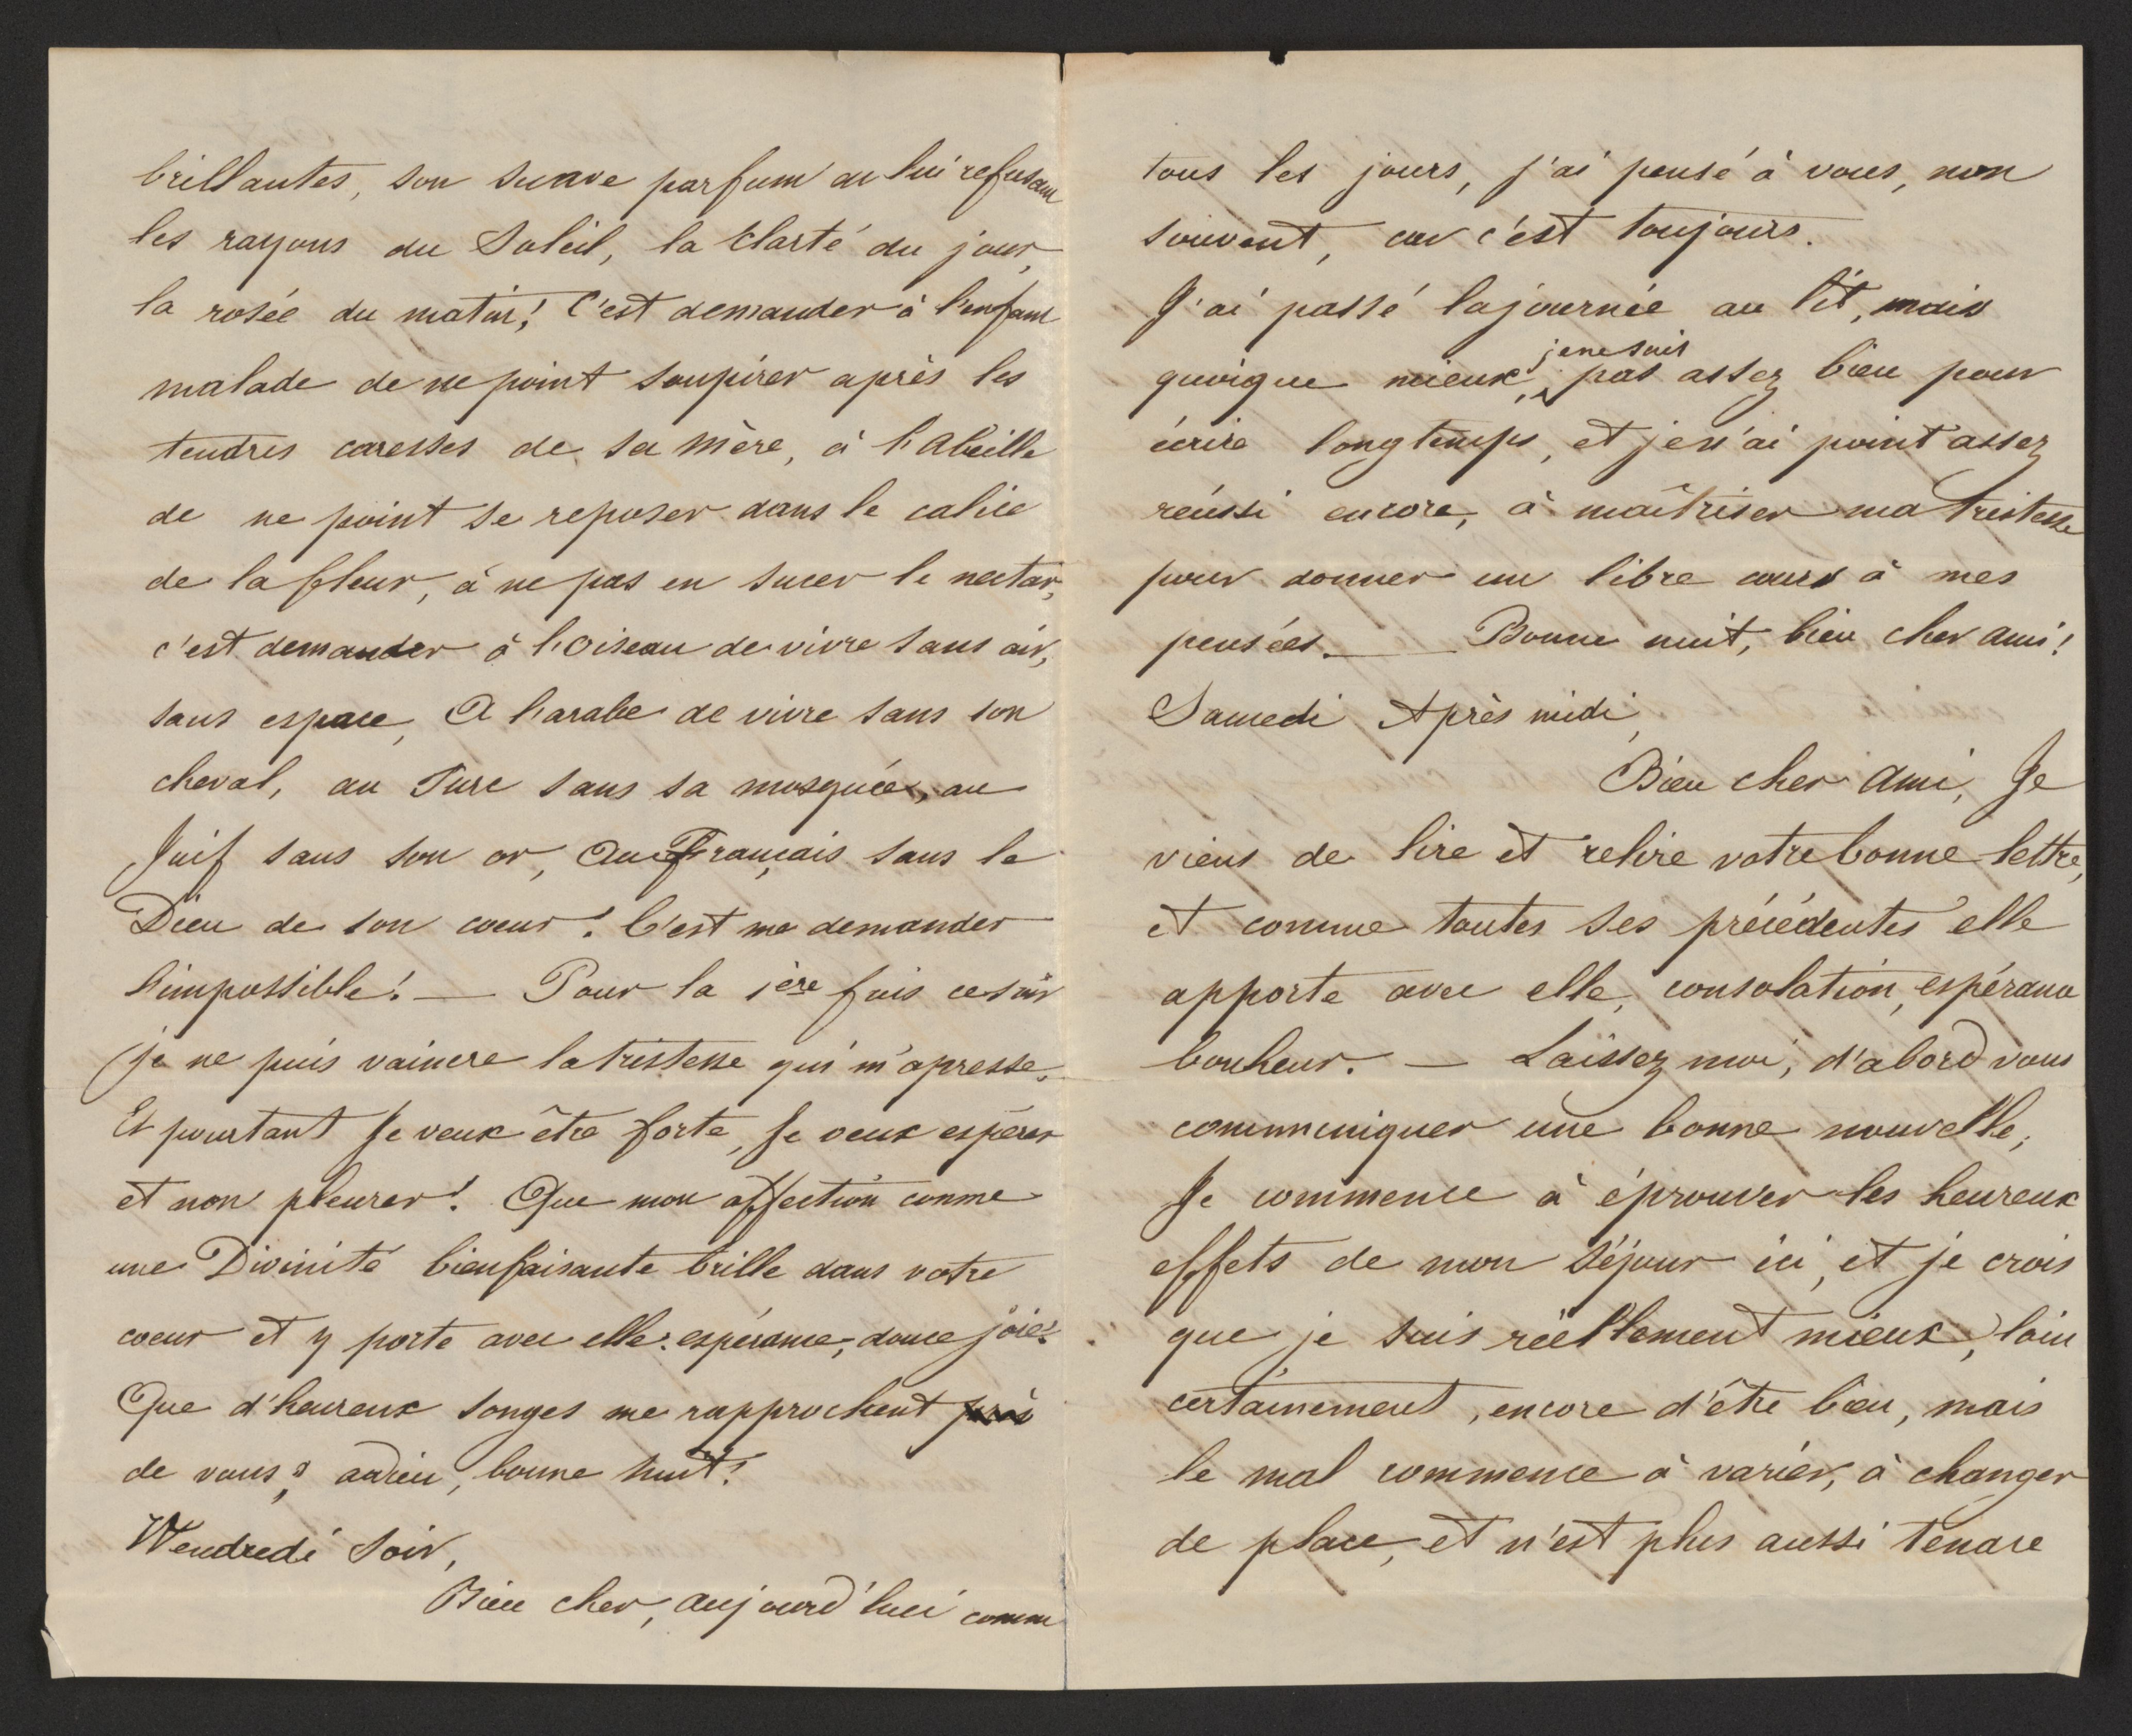 brillantes, son suave parfum en lui refusant
les rayons du Soleil, la Clarté du jour,
la rosée du matin! C'est demander à l'enfant
malade de ne point soupirer après les
tendres caresses de sa Mère, à l'Abeille
de ne point se reposer dans le calice
de la fleur, à ne pas en sucer le nectar,
c'est demander à l'Oiseau de vivre sans air,
sans espace, A l'arabe de vivre sans son
cheval, au Turc sans sa mosquée, au
Juif sans son or, Au Français sans le
Dieu de son coeur! C'est me demander
l'impossible! — Pour la 1ère fois ce soir
je ne puis vaincre la tristesse qui m'opresse.
Et pourtant Je veux être forte, Je veux espérer
et non pleurer! Que mon affection comme
une Divinité bienfaisante brille dans votre
coeur et y porte avec elle: espérance, douce joie!
Que d'heureux songes me rapprochent près
de vous; adieu, bonne nuit!
Vendredi Soir,
Bien cher, aujourd'hui comme
tous les jours, j'ai pensé à vous, non
souvent, car c'est toujours.
J'ai passé la journée au lit, mais
quoique mieux, je ne suis pas assez bien pour
écrire longtemps, et je n'ai point assez
réussi encore, à maîtriser ma tristesse
pour donner un libre cours à mes
pensées. — Bonne nuit, bien cher ami!
Samedi Après midi,
Bien cher Ami, Je
viens de lire et relire votre bonne lettre,
et comme toutes ses précédentes elle
apporte avec elle, consolation, espérance
bonheur. — Laissez moi, d'abord vous
communiquer une bonne nouvelle;
Je commence à éprouver les heureux
effets de mon séjour ici, et je crois
que je suis réellement mieux, loin
certainement, encore d'être bien, mais
le mal commence à varier, à changer
de place, et n'est plus aussi tendre